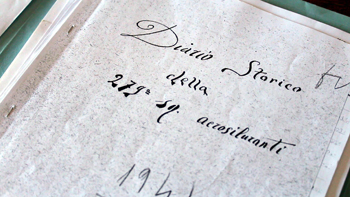 Diario Storico
della
279a sq. aerosiluranti
194